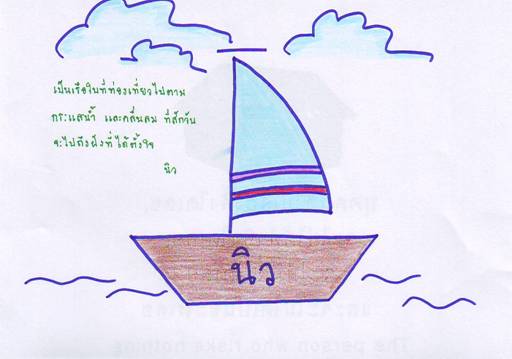 เป็นเรือใบที่ท่องเที่ยวไปตาม
กระแสน้ำ และคลื่นลม ที่สักวัน
จะไปถึงฝั่งที่ได้ตั้งใจ
นิว
นิว
The person who risks nothing